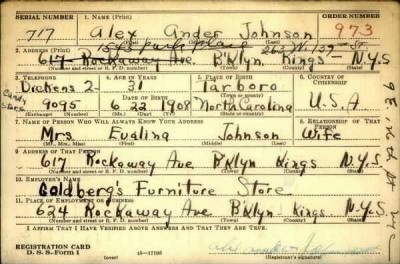 SERIAL NUMBER 1. NAME (Print) ORDER NUMBER
717 Alex Ander Johnson 973
(First) (Middle) (Last)
263 W. 139 St
2. ADDRESS (Print)
617 Rockaway Ave. B'klyn Kings N.Y.S
(Number and street or R. F. D. number) (Town) (County) (State)
3. TELEPHONE 4. AGE IN YEARS 5. PLACE OF BIRTH 6. COUNTRY OF CITIZENSHIP
Candy Store
Dickens 2- 31 Tarboro
DATE OF BIRTH
9095 6 22 1908 North Carolina U.S.A
(Exchange) (Number) (Mo.) (Day) (Yr.) (State or country)
7. NAME OF PERSON WHO WILL ALWAYS KNOW YOUR ADDRESS 8. RELATIONSHIP OF THAT PERSON
Mrs. Evalina Johnson Wife
(Mr., Mrs., Miss) (First) (Middle) (Last)
9. ADDRESS OF THAT PERSON
617 Rockaway Ave B'klyn Kings N.Y.S.
(Number and street or R. F. D. number) (Town) (County) (State)
10. EMPLOYER'S NAME
Goldberg's Furniture Store
11. PLACE OF EMPLOYMENT OR BUSINESS
624 Rockaway Ave B'klyn Kings N.Y.S.
(Number and street or R. F. D. number) (Town) (County) (State)
I AFFIRM THAT I HAVE VERIFIED ABOVE ANSWERS AND THAT THEY ARE TRUE.
REGISTRATION CARD
D. S. S. Form 1 16-17105
(Registrant's signature)